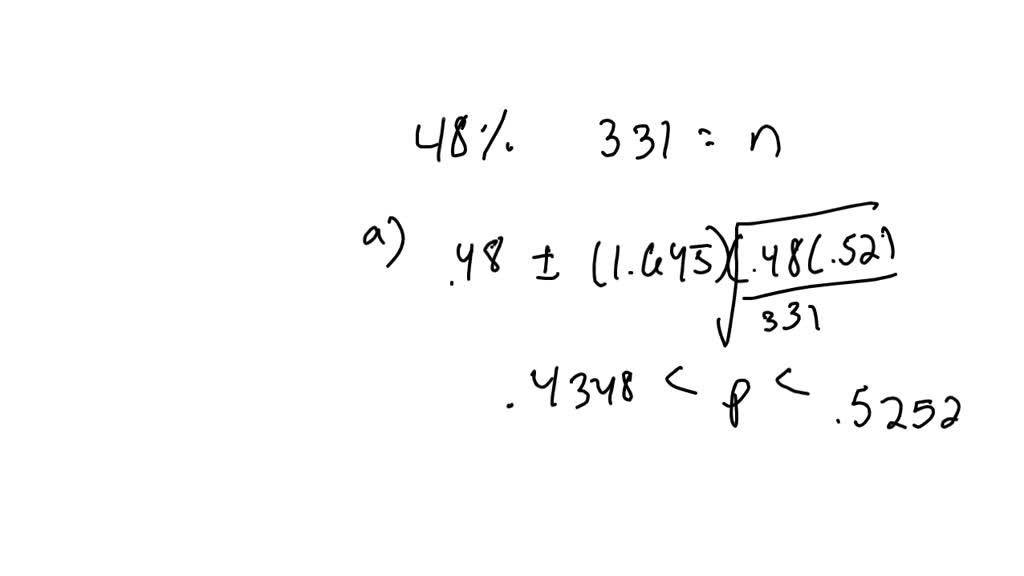 48% 331 = n
a) .48 ± (1.645)√(.48(.52)/331)
.4348 < p < .5252